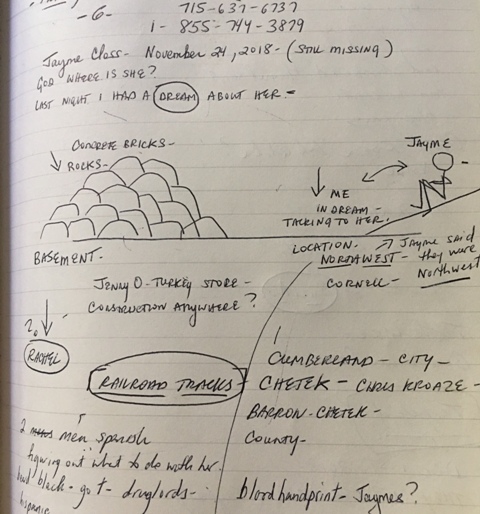 - 6 -
715-637-6737
1- 855-744-3879
Jayme Closs - November 24, 2018 - (STILL MISSING)
GOD WHERE IS SHE?
LAST NIGHT I HAD A DREAM ABOUT HER -
CONCRETE BRICKS -
ROCKS -
JAYME
ME
IN DREAM -
TALKING TO HER.
BASEMENT -
LOCATION -
Jayme said
NORTHWEST - they were
Northwest
CORNELL -
JENNY O - TURKEY STORE -
CONSTRUCTION ANYWHERE?
RACHEL
RAILROAD TRACKS -
CUMBERLAND - CITY -
CHETEK - CHRIS KROAZE -
BARRON - CHETEK -
COUNTY -
2 men spanish
figuring out what to do with her.
had black - druglords -
hispanic
blood handprint - Jaymes?